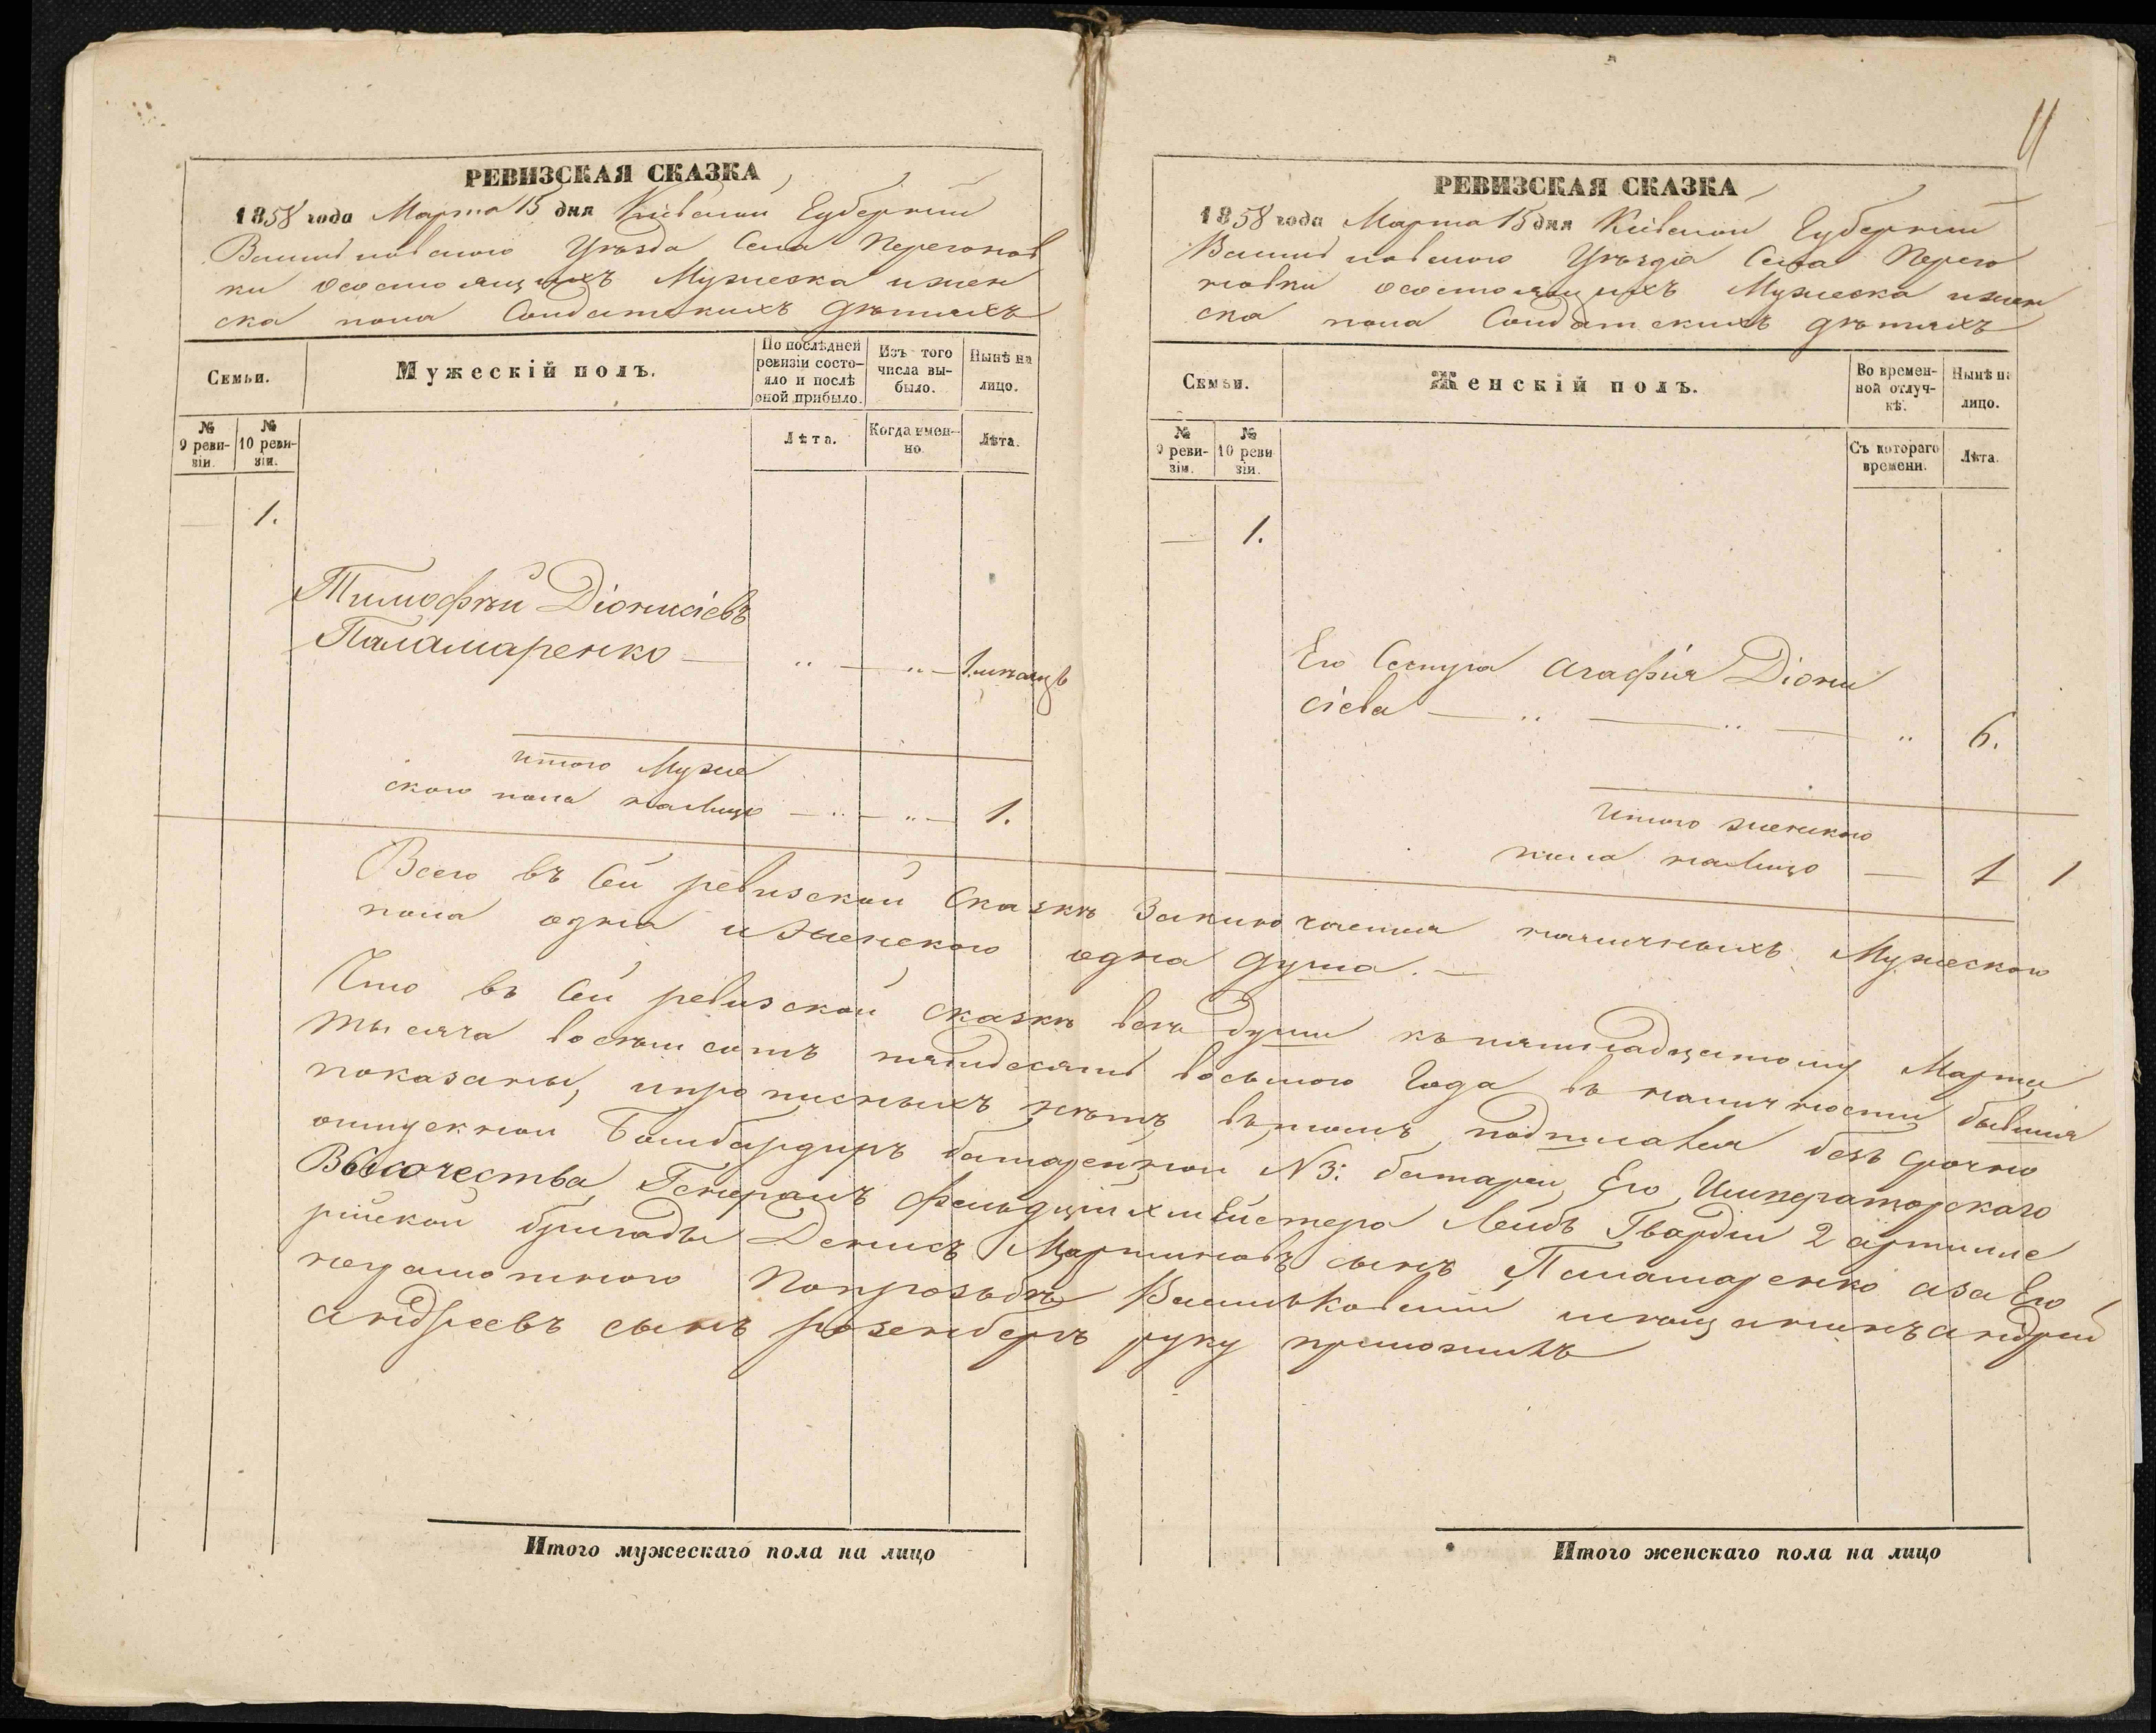 РЕВИЗСКАЯ СКАЗКА
1858 года Марта 15 дня Кіевской Губерніи
Васильковского Уѣзда Села Перегонов
ки осостоящихъ Мужеска ижен
ска пола Солдатскихъ дѣтяхъ
Семьи.
Мужескій полъ.
По послѣдней
ревизіи состо-
яло и послѣ
оной прибыло.
Изъ того
числа вы-
было.
Нынѣ на
лицо.
№
9 реви-
зіи.
№
10 реви-
зіи.
Лѣта.
Когда имен-
но.
Лѣта.
— 1.
Тимофѣй Діонисіевъ
Паламаренко — „ — „ — 1. мѣсяцъ
итого Муже
ского пола налицо — „ — „ — 1.
11
РЕВИЗСКАЯ СКАЗКА
1858 года Марта 15 дня Кіевской Губерніи
Васильковского Уѣзда Села Перего
новки осостоящихъ Мужеска ижен
ска пола Солдатскихъ дѣтяхъ
Семьи.
Женскій полъ.
Во времен-
ной отлуч-
кѣ.
Нынѣ на
лицо.
№
9 реви-
зіи.
№
10 реви
зіи.
Съ котораго
времени.
Лѣта.
— 1.
Его Сестра Агафія Діони
сіева — „ — „ — „ 6.
Итого женского
пола налицо — 1 1
Всего въ Сей ревизской Сказкѣ Заключается наличныхъ Мужеского
пола одна иженского одна душа. —
Что въ Сей ревизской сказкѣ всѣ души къ пятнадцатому Марта
тысяча восемь сотъ пятьдесятъ восьмого Года въ наличности бывшія
показаны, ипрописныхъ нѣтъ вътомъ подписался безъ срочно
отпускной Бомбардиръ батарейной №3: батареи Его Императорскаго
Высочества Генералъ Фельдцейхмейстера Лейбъ Гвардіи 2 артилле
рійской бригады Денисъ Мартиновъ сынъ Паламаренко аза Его
неграмотного попрозьбѣ Васильковскій мѣщанинъ андрей
андреевъ сынъ розенбергъ руку приложилъ
Итого мужескаго пола на лицо
Итого женскаго пола на лицо